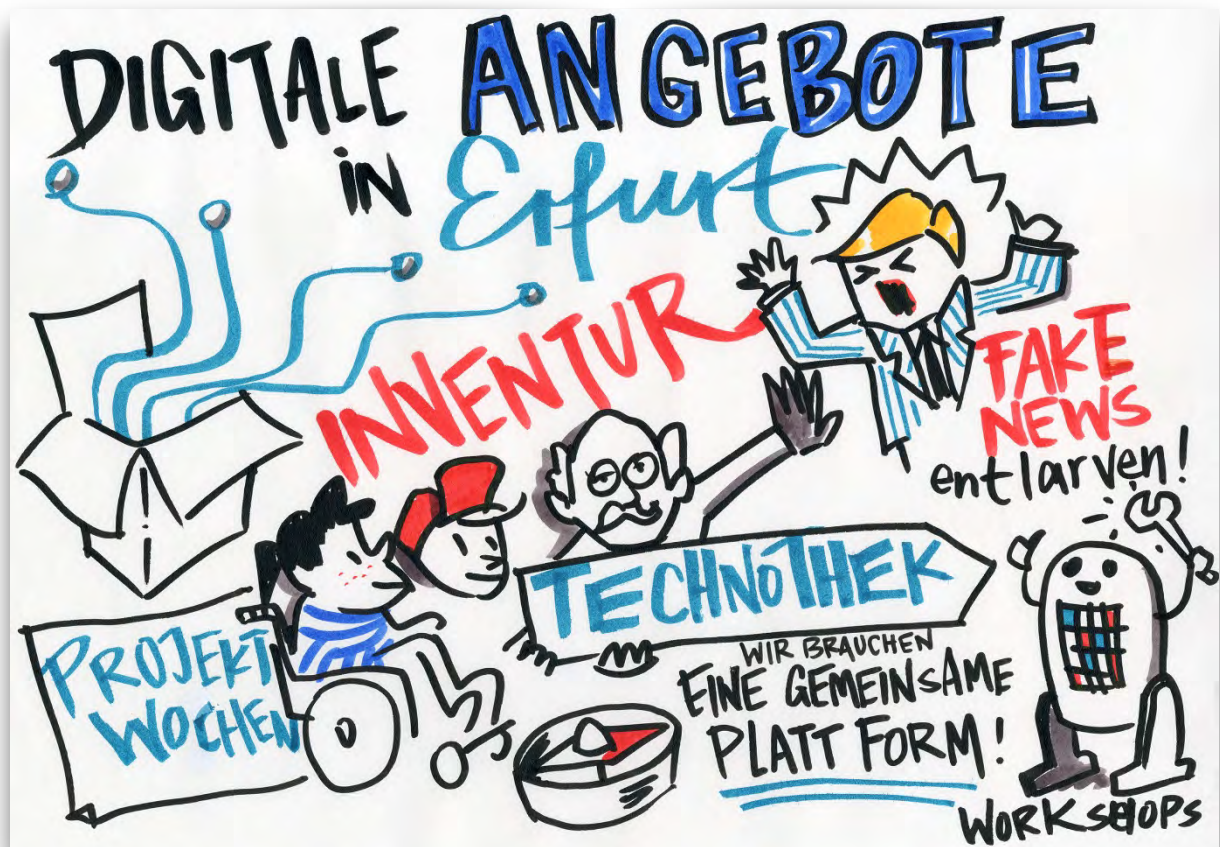 DIGITALE ANGEBOTE
IN Erfurt
INVENTUR
FAKE
NEWS
entlarven!
TECHNOTHEK
PROJEKT
WOCHEN
WIR BRAUCHEN
EINE GEMEINSAME
PLATT FORM!
WORKSHOPS